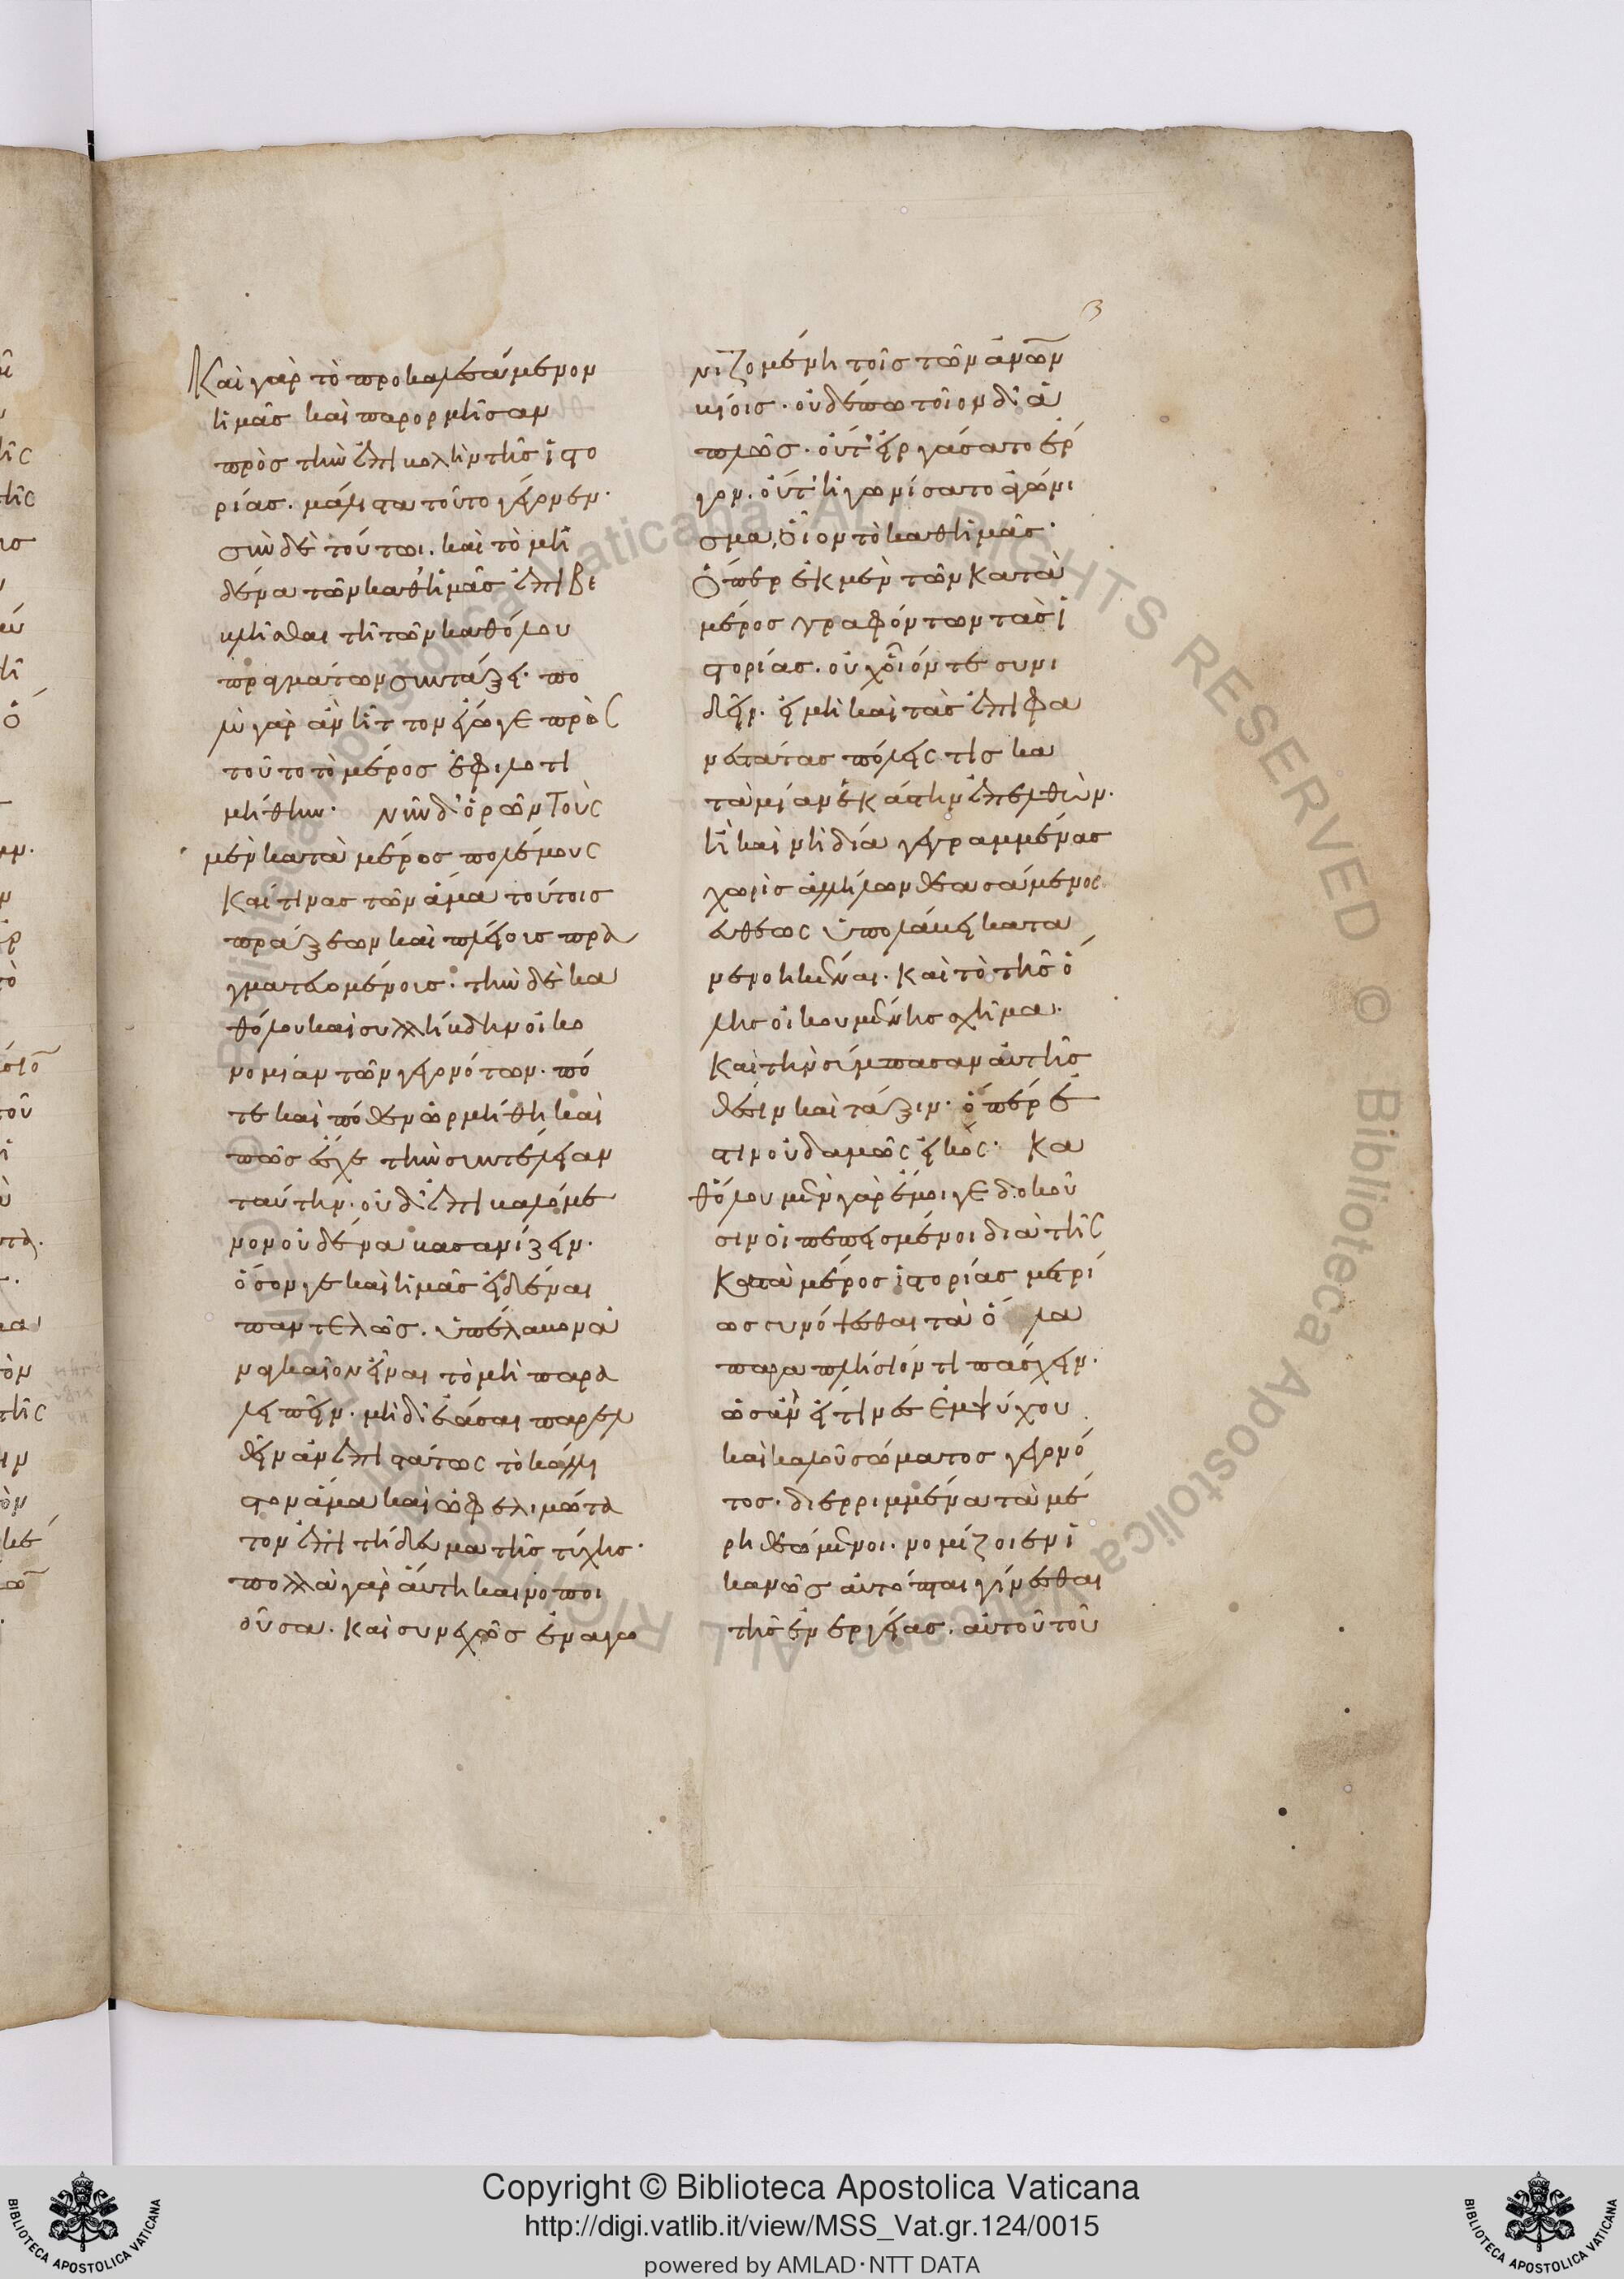 3
Καὶ γὰρ τὸ προκαλεσάμενον
ἡμᾶς καὶ παρορμῆσαν
πρὸς τὴν ἐπιβολὴν τῆς ἱστο
ρίας. μάλιστα τοῦτο γέγονεν.
σὺν δὲ τούτωι. καὶ τὸ μη
δένα τῶν καθ ἡμᾶς ἐπιβε
βλῆσθαι τῆ τῶν καθόλου
πραγμάτων συντάξει. πο
λὺ γὰρ ἂν ἧττον ἔγωγε πρὸς
τοῦτο τὸ μέρος ἐφιλοτι
μήθην. νῦν δ' ὁρῶν τοὺς
μὲν κατὰ μέρος πολέμους
καί τινας τῶν ἅμα τούτοις
πράξεων καὶ πλείοις πρα
γματευομένοις. τὴν δὲ κα
θόλου καὶ συλλήβδην οἰκο
νομίαν τῶν γεγονότων. πό
τε καὶ πόθεν ὡρμήθη καὶ
πῶς ἔσχε τὴν συντέλειαν
ταύτην. οὐδ ἐπιβαλόμε
νον οὐδένα βασανίζειν.
ὅσον γε καὶ ἡμᾶς εἰδέναι
παντελῶς. ὑπέλαβον ἀ
ναγκαῖον εἶναι τὸ μὴ παρα
λιπεῖν. μηδ ἐᾶσαι παρελ
θεῖν ἀνεπιστάτως τὸ κάλλι
στον ἅμα καὶ ὠφελιμώτα
τον ἐπιτήδευμα τῆς τύχης.
πολλὰ γὰρ αὕτη καινοποι
οῦσα. καὶ συνεχῶς ἐναγω
νιζομένη τοῖς τῶν ἀνθρώπων
βίοις. οὐδέπω τοῖον δ ἁ
πλῶς. οὔτ' εἰργάσατο ἔρ
γον. οὔτ' ἠγωνίσατο ἀγώνι
σμα, οἷον τὸ καθ ἡμᾶς.
ὅπερ ἐκ μὲν τῶν κατὰ
μέρος γραφόντων τὰς ἱ
στορίας. οὐχ οἷόν τε συνι
δεῖν. εἰ μὴ καὶ τὰς ἐπιφα
νεστάτας πόλεις τις κα
τὰ μίαν ἑκάστην ἐπελθὼν.
ἢ καὶ νὴ δία γεγραμμένας
χωρὶς ἀλλήλων θεασάμενος
εὐθέως ὑπολαμβάνει κατα
νενοηκέναι. καὶ τὸ τῆς ὅ
λης οἰκουμένης σχῆμα.
καὶ τὴν σύμπασαν αὐτῆς
θέσιν καὶ τάξιν. ὅπέρ ἐ
στιν οὐδαμῶς εἰκός. Κα
θόλου μὲν γὰρ ἔμοιγε δοκοῦ
σιν οἱ πεπεισμένοι διὰ τῆς
κατὰ μέρος ἱστορίας μετρί
ως συνόψεσθαι τὰ ὅλα
παραπλήσιόν τι πάσχειν.
ὡς ἂν εἴ τινες ἐμψύχου
καὶ καλοῦ σώματος γεγονό
τος. διερριμμένα τὰ μέ
ρη θεώμενοι. νομίζοιεν ἱ
κανῶς αὐτόπται γίνεσθαι
τῆς ἐνεργείας. αὐτοῦ τοῦ
Copyright © Biblioteca Apostolica Vaticana
http://digi.vatlib.it/view/MSS_Vat.gr.124/0015
powered by AMLAD·NTT DATA